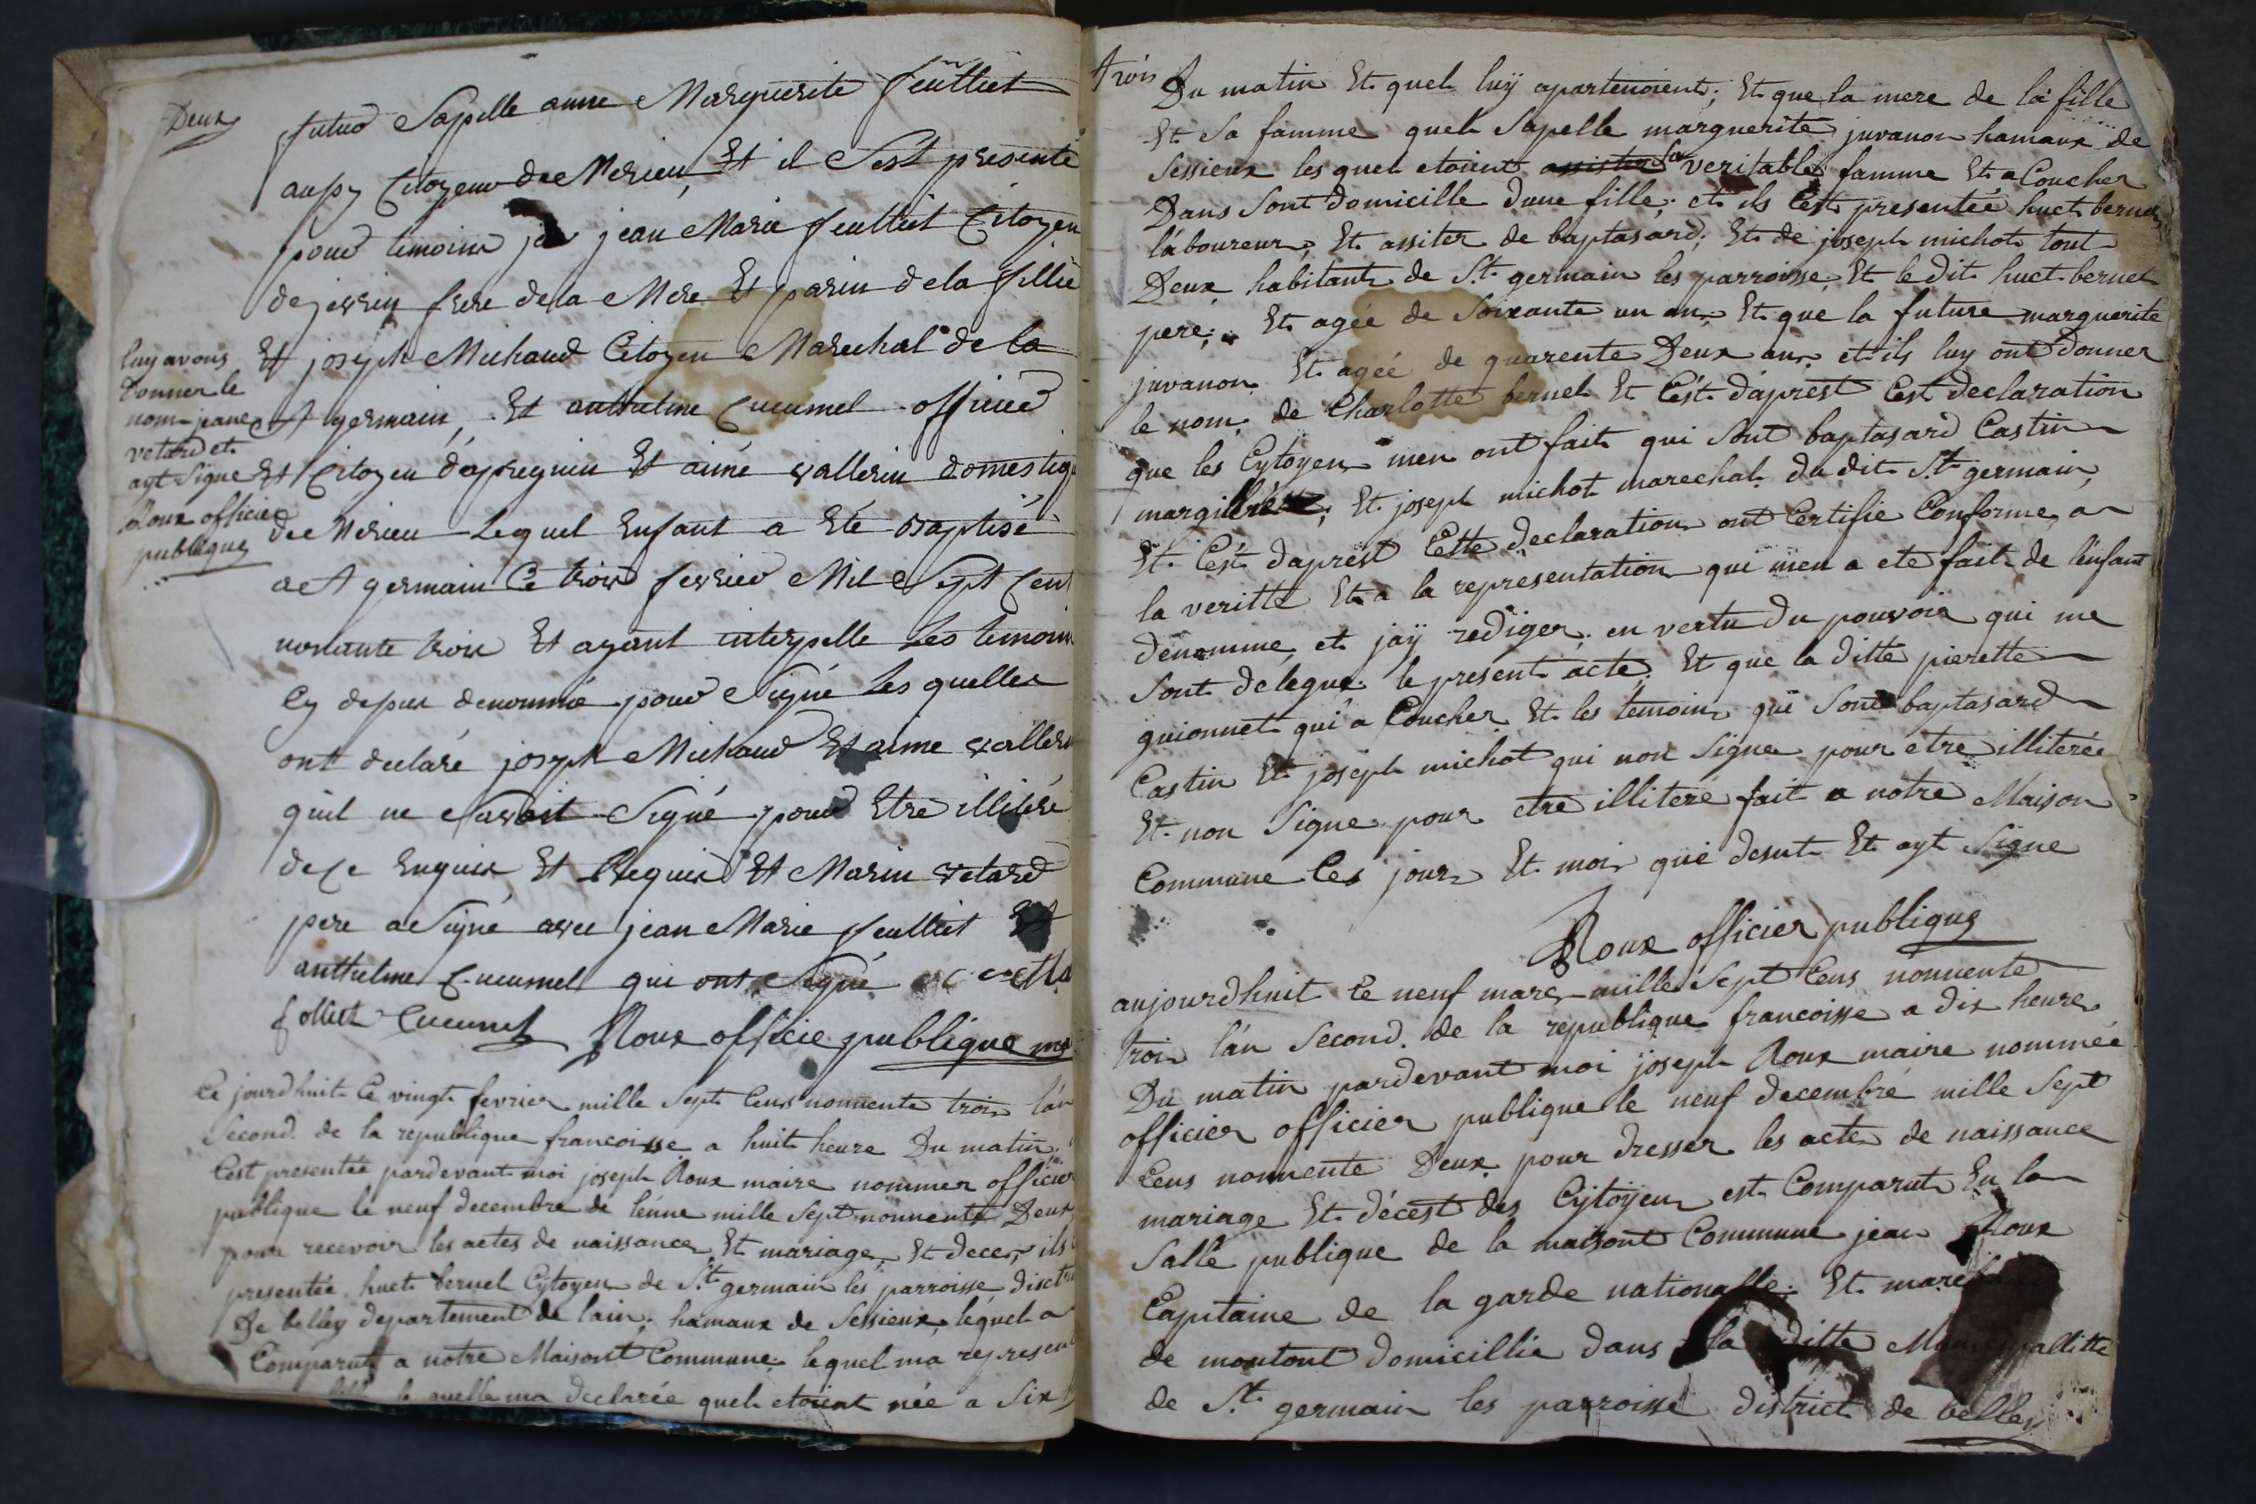 Deux
futur Sapelle anne Marguerite feulliet
aussy Citoyenne de Merieu, Et il Sest presenté
pour temoins jea jean Marie feulliet Citoyen
de jevrin frere de la Mere Et parin de la fillie
Et joseph Michaud Citoyen Marechal de la
St germain, Et anthelme Cucumel officier
Et Citoyen dapregnin Et aimé vallerin domestiq
de Merieu Lequel Enfant a Eté Baptisé
a St germain Ce trois fevrier Mil Sept Cent
nonante trois Et ayant interpelle Les temoins
Cy desus denommé pour Signé Les quelles
ont declaré joseph Michaud Et aime vallerin
quil ne Savoit Signé pour Etre illitéré
de Ce Enquis Et Requis Et Marin vetard
pere a Signé avec jean Marie feulliet Et
anthelme Cucumel qui ont Signé
folliet Cucumel Roux officie publique
luy avons
Donner le
nom jeane
vetard et
ayt Signe
Roux officier
publique
Ce jourdhuit Ce vingt fevrier mille Sept Cens nonnente trois lán
Second. de la republique francoisse a huit heure Du matin
Cest presentée pardevant moi joseph Roux maire nommer officier
publique le neuf decembre de lénne mille Sept nonnente Deux
pour recevoir les actes de naissance Et mariage, Et deces, ils
presentée huet bernel Cytoyen de St. germain les parroisse disctri
De belley departement de lain, hamaux de Sessieux, lequel a
Comparut a notre Maisont Commune lequel ma represen
fille le quelle ma declarée quel etoient née a Six
trois
Du matin Et quel luÿ apartenoient; Et que la mere de la fille
Et Sa famme quel Sapelle marguerite juvanon hamaux de
Sessieux les quel etoient assister Sa veritable famme Et a Coucher
Dans Sont domicille dune fille; et ils Cest presentée huet bernel
láboureur, Et assiter de baptasard, Et de joseph michot tout
Deux habitant de St. germain les parroisse, Et le dit huet bernel
pere; Et agée de Soixante un an, Et que la future marguerite
juvanon Et agée de quarente Deux an, et ils luy ont Donner
le nom, de Charlotte bernel Et Cést dáprest Cest declaration
que les Cytoyen men ont fait qui Sont baptasard Castin
margillié; Et joseph michot marechal du dit St. germain,
Et Cést daprest Cette declaration ont Certifie Conforme a
la veritté Et a la representation qui men a ete fait de lénfant
denomme, et jaÿ rediger en vertu Du pouvoir qui me
Sont delegue le present acte. Et que la ditte pierette
guionnet qui a Coucher Et les temoin qui Sont baptasard
Castin Et joseph michot qui non Signe pour etre illiterée
Et non Signe pour etre illiteré fait a notre Maison
Commune les jour Et moir que desut Et ayt Signe
Roux officier publique
aujourdhuit Ce neuf mars mille Sept Cens nonnente
trois lán Second. de la republique francoisse a dix heure
Du matin pardevant moi joseph Roux maire nommée
officier officier publique le neuf decembre mille Sept
Cens nonnente Deux pour dresser les acte de naissance
mariage Et décest des Cytoÿen est Comparut En la
Salle publique de la maisont Commune jean Roux
Capitaine de la garde nationalle. Et marechal
de montont domicillie dans la ditte Municipallitte
de St. germain les parroisse district de belley